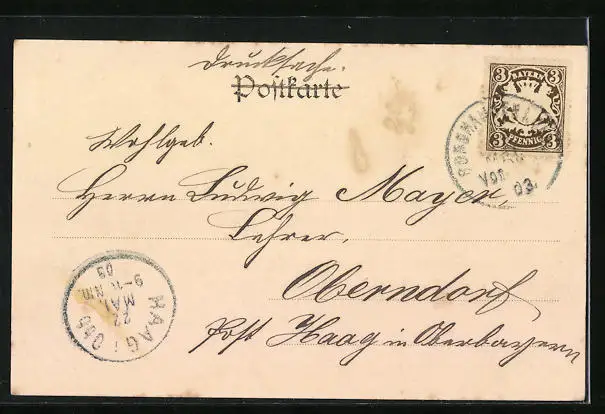 Drucksache.
Postkarte
3 BAYERN 3
3 PFENNIG 3
Vor. 03.
Wohlgeb.
Herrn Ludwig Mayer,
Lehrer,
Oberndorf,
Post Haag in Oberbayern
HAAG i. OBB
22 MAI
9-11 Nm.
03